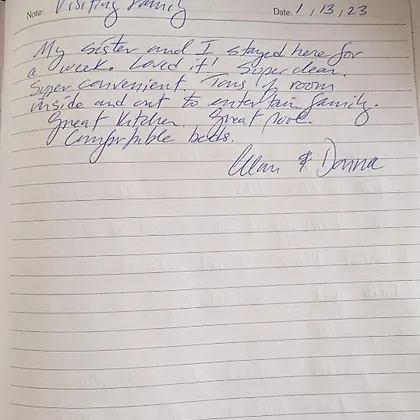 Note: Visiting Family Date: 1, 13, 23
My sister and I stayed here for
a week. Loved it! Super clean.
Super convenient. Tons of room
inside and out to entertain family.
Great kitchen. Great pool.
Comfortable beds.
& Donna